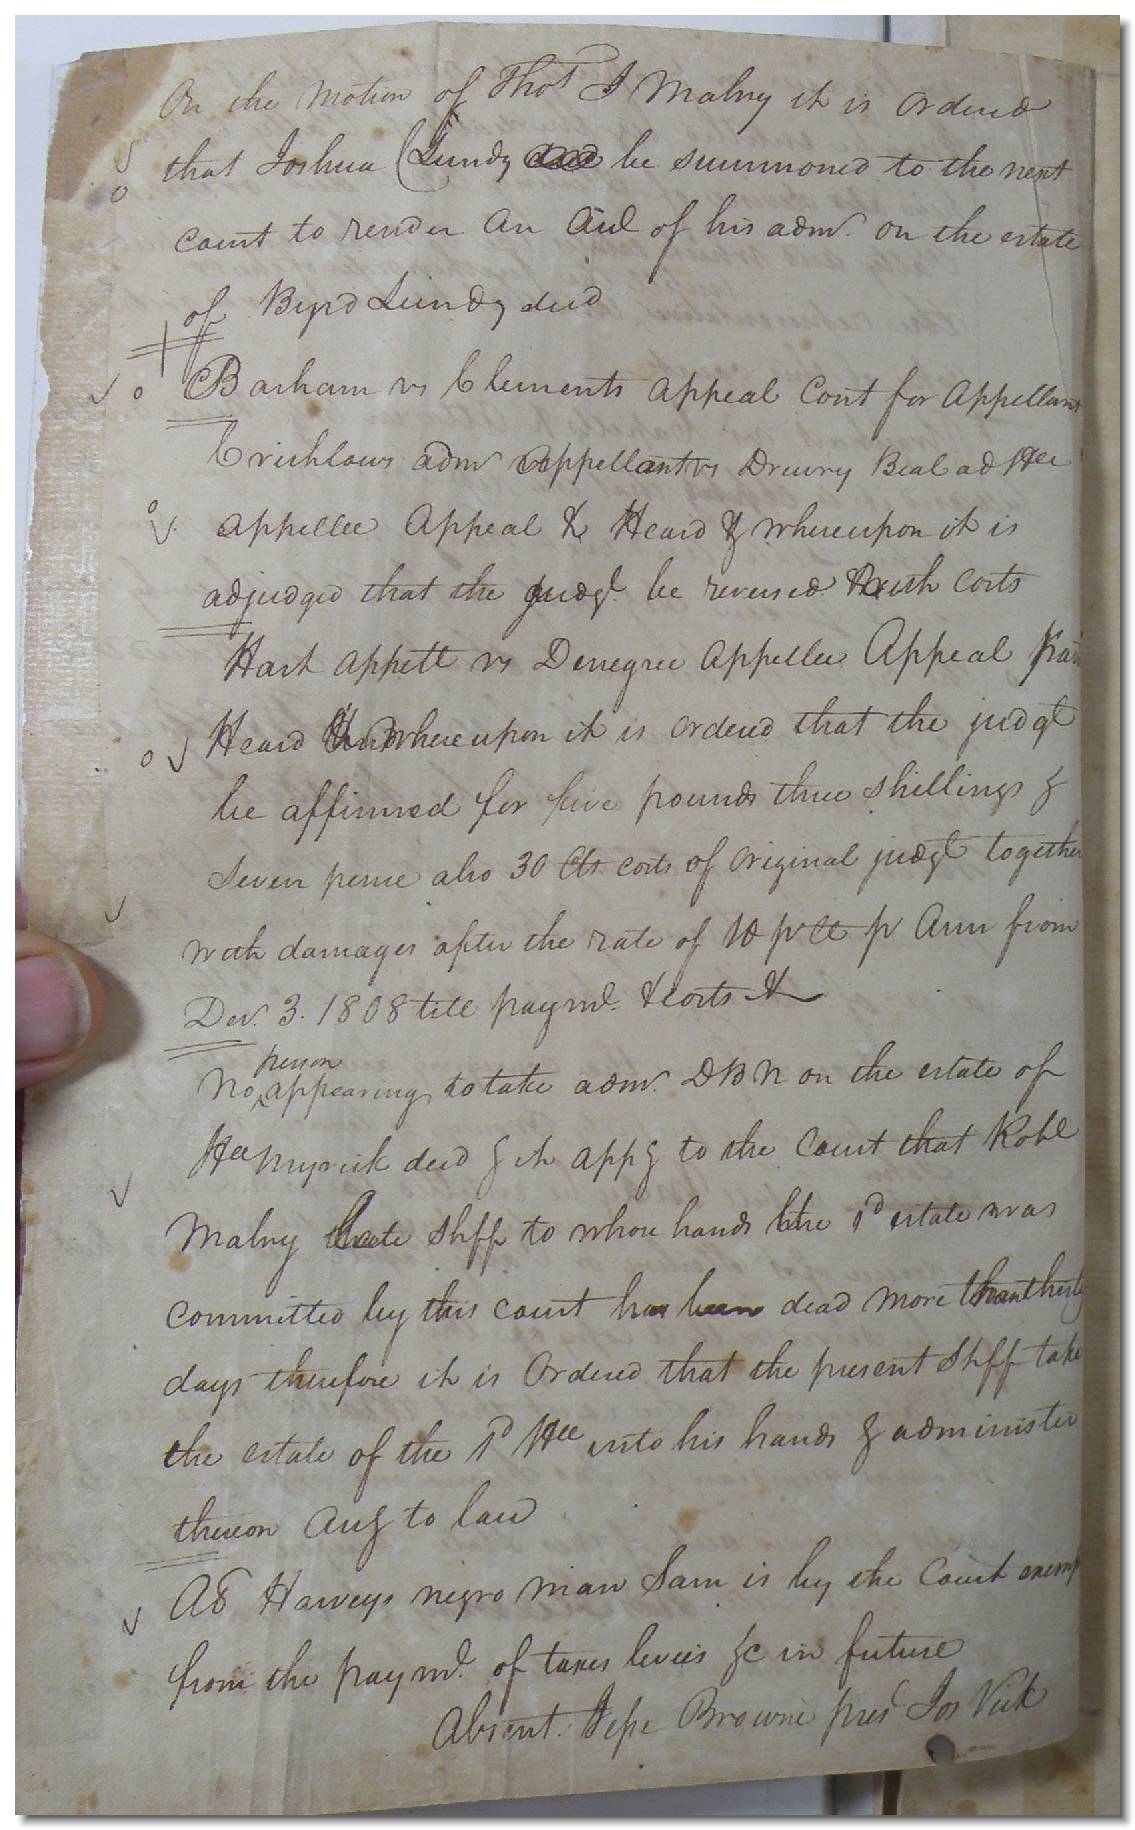 On the motion of Thos I Malny it is ordered
that Joshua Lundy be summoned to the next
court to render an Acct of his adm. on the estate
of Byrd Lundy decd
Barham vs Clements appeal Cont for Appellant
Crichlows adm Appellant vs Drewry Beal ad
appellee Appeal & Heard & whereupon it is
adjudged that the judgt. be reversed & with costs
Hart appellt vs Denegree appellee Appeal
Heard whereupon it is ordered that the judgt
be affirmed for five pounds three shillings &
Seven pence also 30 Cts costs of original judgt together
with damages after the rate of 10 p Ct p Ann from
Dec. 3. 1808 till paymt. & costs &
person
No appearing to take adm. DBN on the estate of
Myrick decd & it appg to the Court that Robt
Malny late Shff to whose hands the sd estate was
committed by this court has been dead more than thirty
days therefore it is Ordered that the present Shff take
the estate of the sd into his hands & administer
thereon Acg to law
Harveys negro man Sam is by the Court exemp
from the paymt. of taxes levies &c in future
Absent. Jesse Browne prest Jos Vick